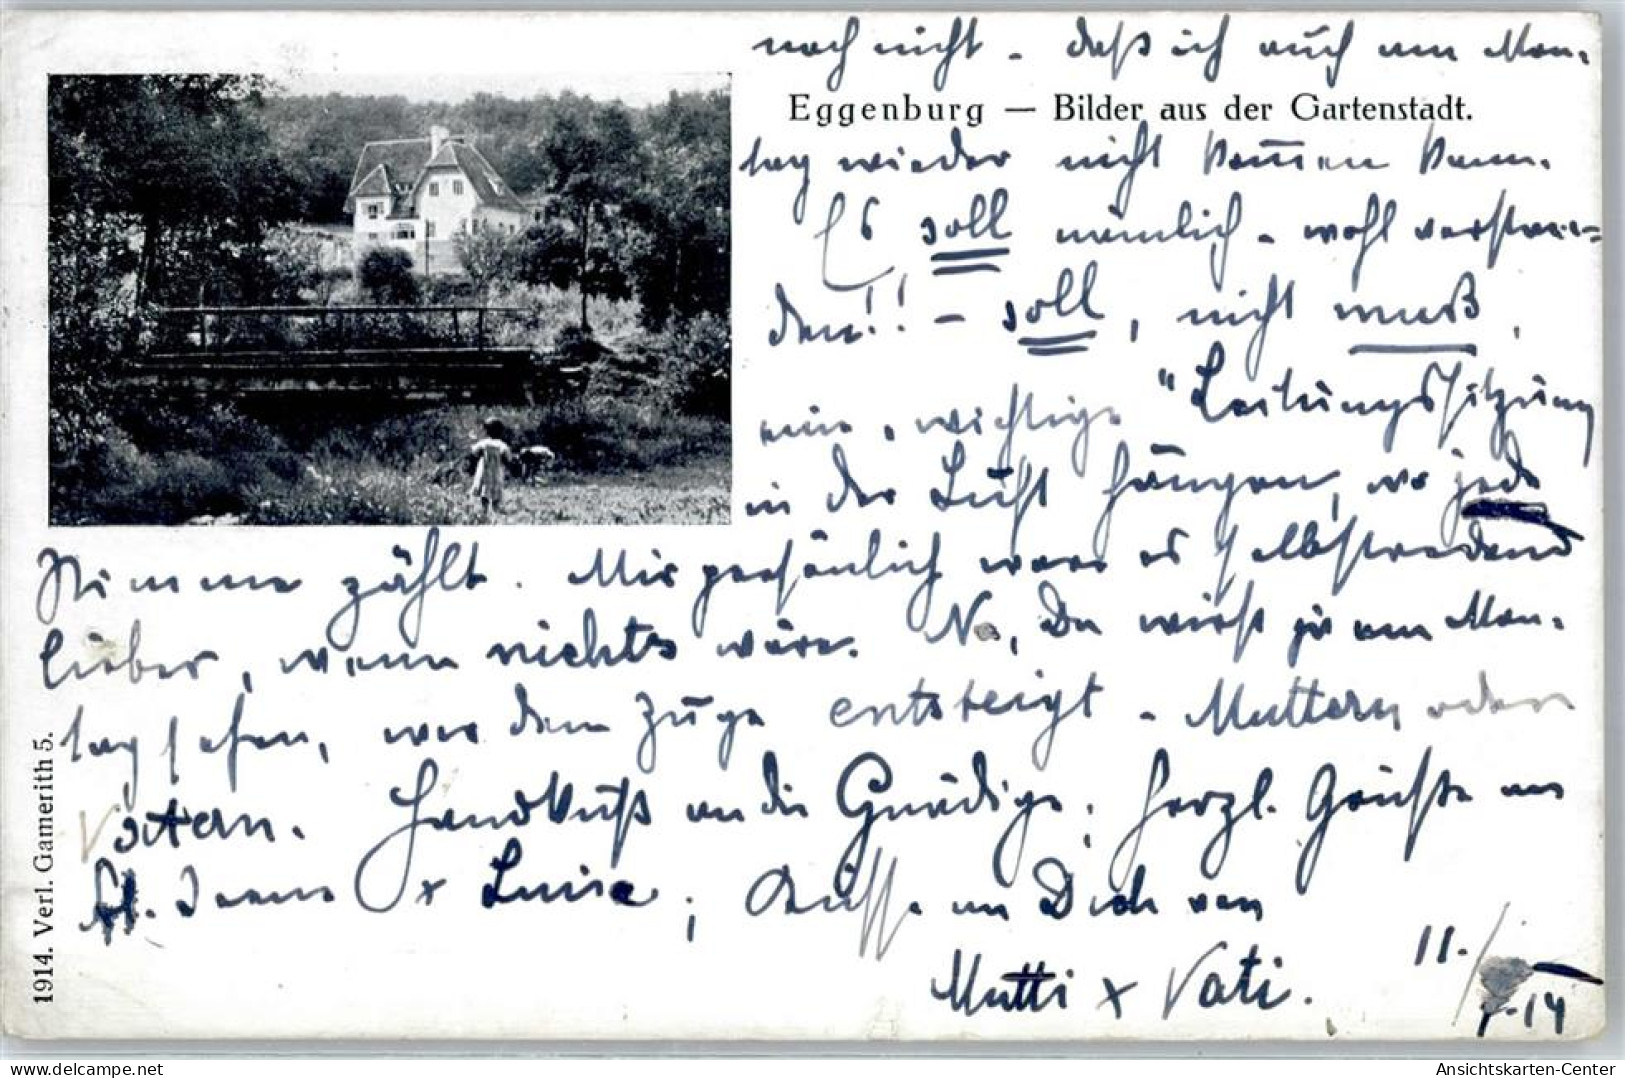 noch nicht - daß ich auch am Mon-
Eggenburg — Bilder aus der Gartenstadt.
tag wieder nicht kom̄en kann.
Es soll nämlich - wohl verstan-
den!! - soll, nicht muß,
eine wichtige "Leitungssitzung
in der Luft hängen, wo jede
Stimme zählt. Mir persönlich wäre es selbstredend
lieber, wenn nichts wäre. Na, Du wirst ja am Mon-
tag sehen, wer dem Zuge entsteigt - Muttern oder
Vatern. Handkuß an die Gnädige, herzl. Grüße an
Luise; Küsse an Dich von
Mutti + Vati.
11./
14
1914. Verl. Gamerith 5.
delcampe.net
Ansichtskarten-Center